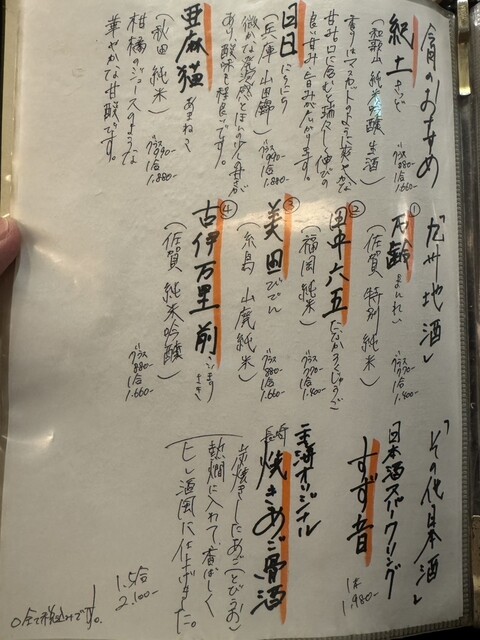 今月のおすすめ
紀土 きっど
(和歌山 純米吟醸 生酒)
グラス 880-
1合 1.660-
香りはマスカットのように爽やかな
甘み口に含むと瑞々しく伸びの
良い甘み、旨みが広がります。
日日 にちにち
(兵庫 山田錦)
グラス 990-
1合 1.880-
微かな発泡感とほんの少しの甘さが
あり、酸味も程良いです。
亜麻猫 あまねこ
(秋田 純米)
グラス 990-
1合 1.880-
柑橘のジュースのような
華やかな甘酸です。
「九州地酒」
① 万齢 まんれい
(佐賀 特別純米)
グラス 770-
1合 1.400-
② 田中六五 たなかろくじゅうご
(福岡 純米)
グラス 770-
1合 1.400-
③ 美田 びでん
(糸島 山廃純米)
グラス 880-
1合 1.660-
④ 古伊万里 前 こいまり さき
(佐賀 純米吟醸)
グラス 880-
1合 1.660-
「その他日本酒」
日本酒スパークリング
すず音
1本 1.980-
オリジナル
長崎 焼きあご骨酒
炭焼きしたあご(とびうお)
熱燗に入れて、香ばしく
ヒレ酒風に仕上げました。
1.5合
2.100-
○全て税込みです。